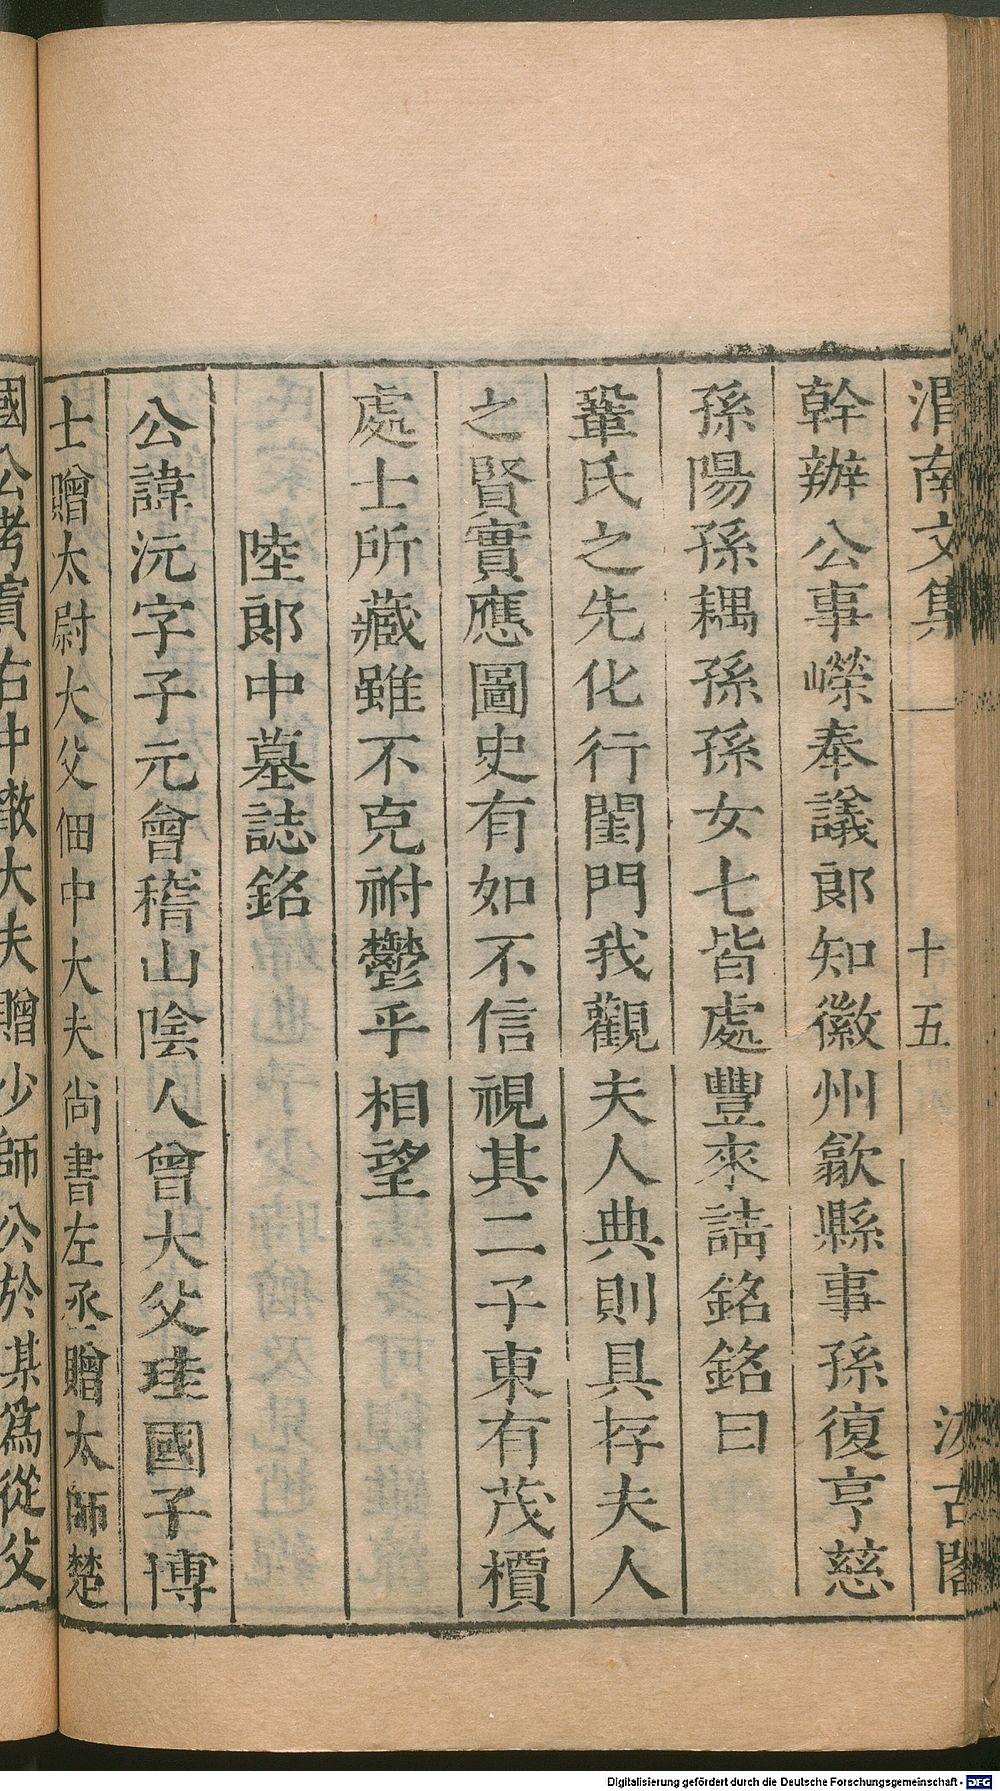 渭南文集 十五 汲古閣
幹辦公事嶸奉議郎知徽州歙縣事孫復亨慈
孫陽孫耦孫孫女七皆處豐來請銘銘曰
鞏氏之先化行閨門我觀夫人典則具存夫人
之賢實應圖史有如不信視其二子東有茂櫝
處士所藏雖不克祔鬱乎相望
陸郎中墓誌銘
公諱沅字子元會稽山陰人曾大父珪國子博
士贈太尉大父佃中大夫尚書左丞贈太師楚
國公考寘右中散大夫贈少師公於某爲從父
Digitalisierung gefördert durch die Deutsche Forschungsgemeinschaft - DFG